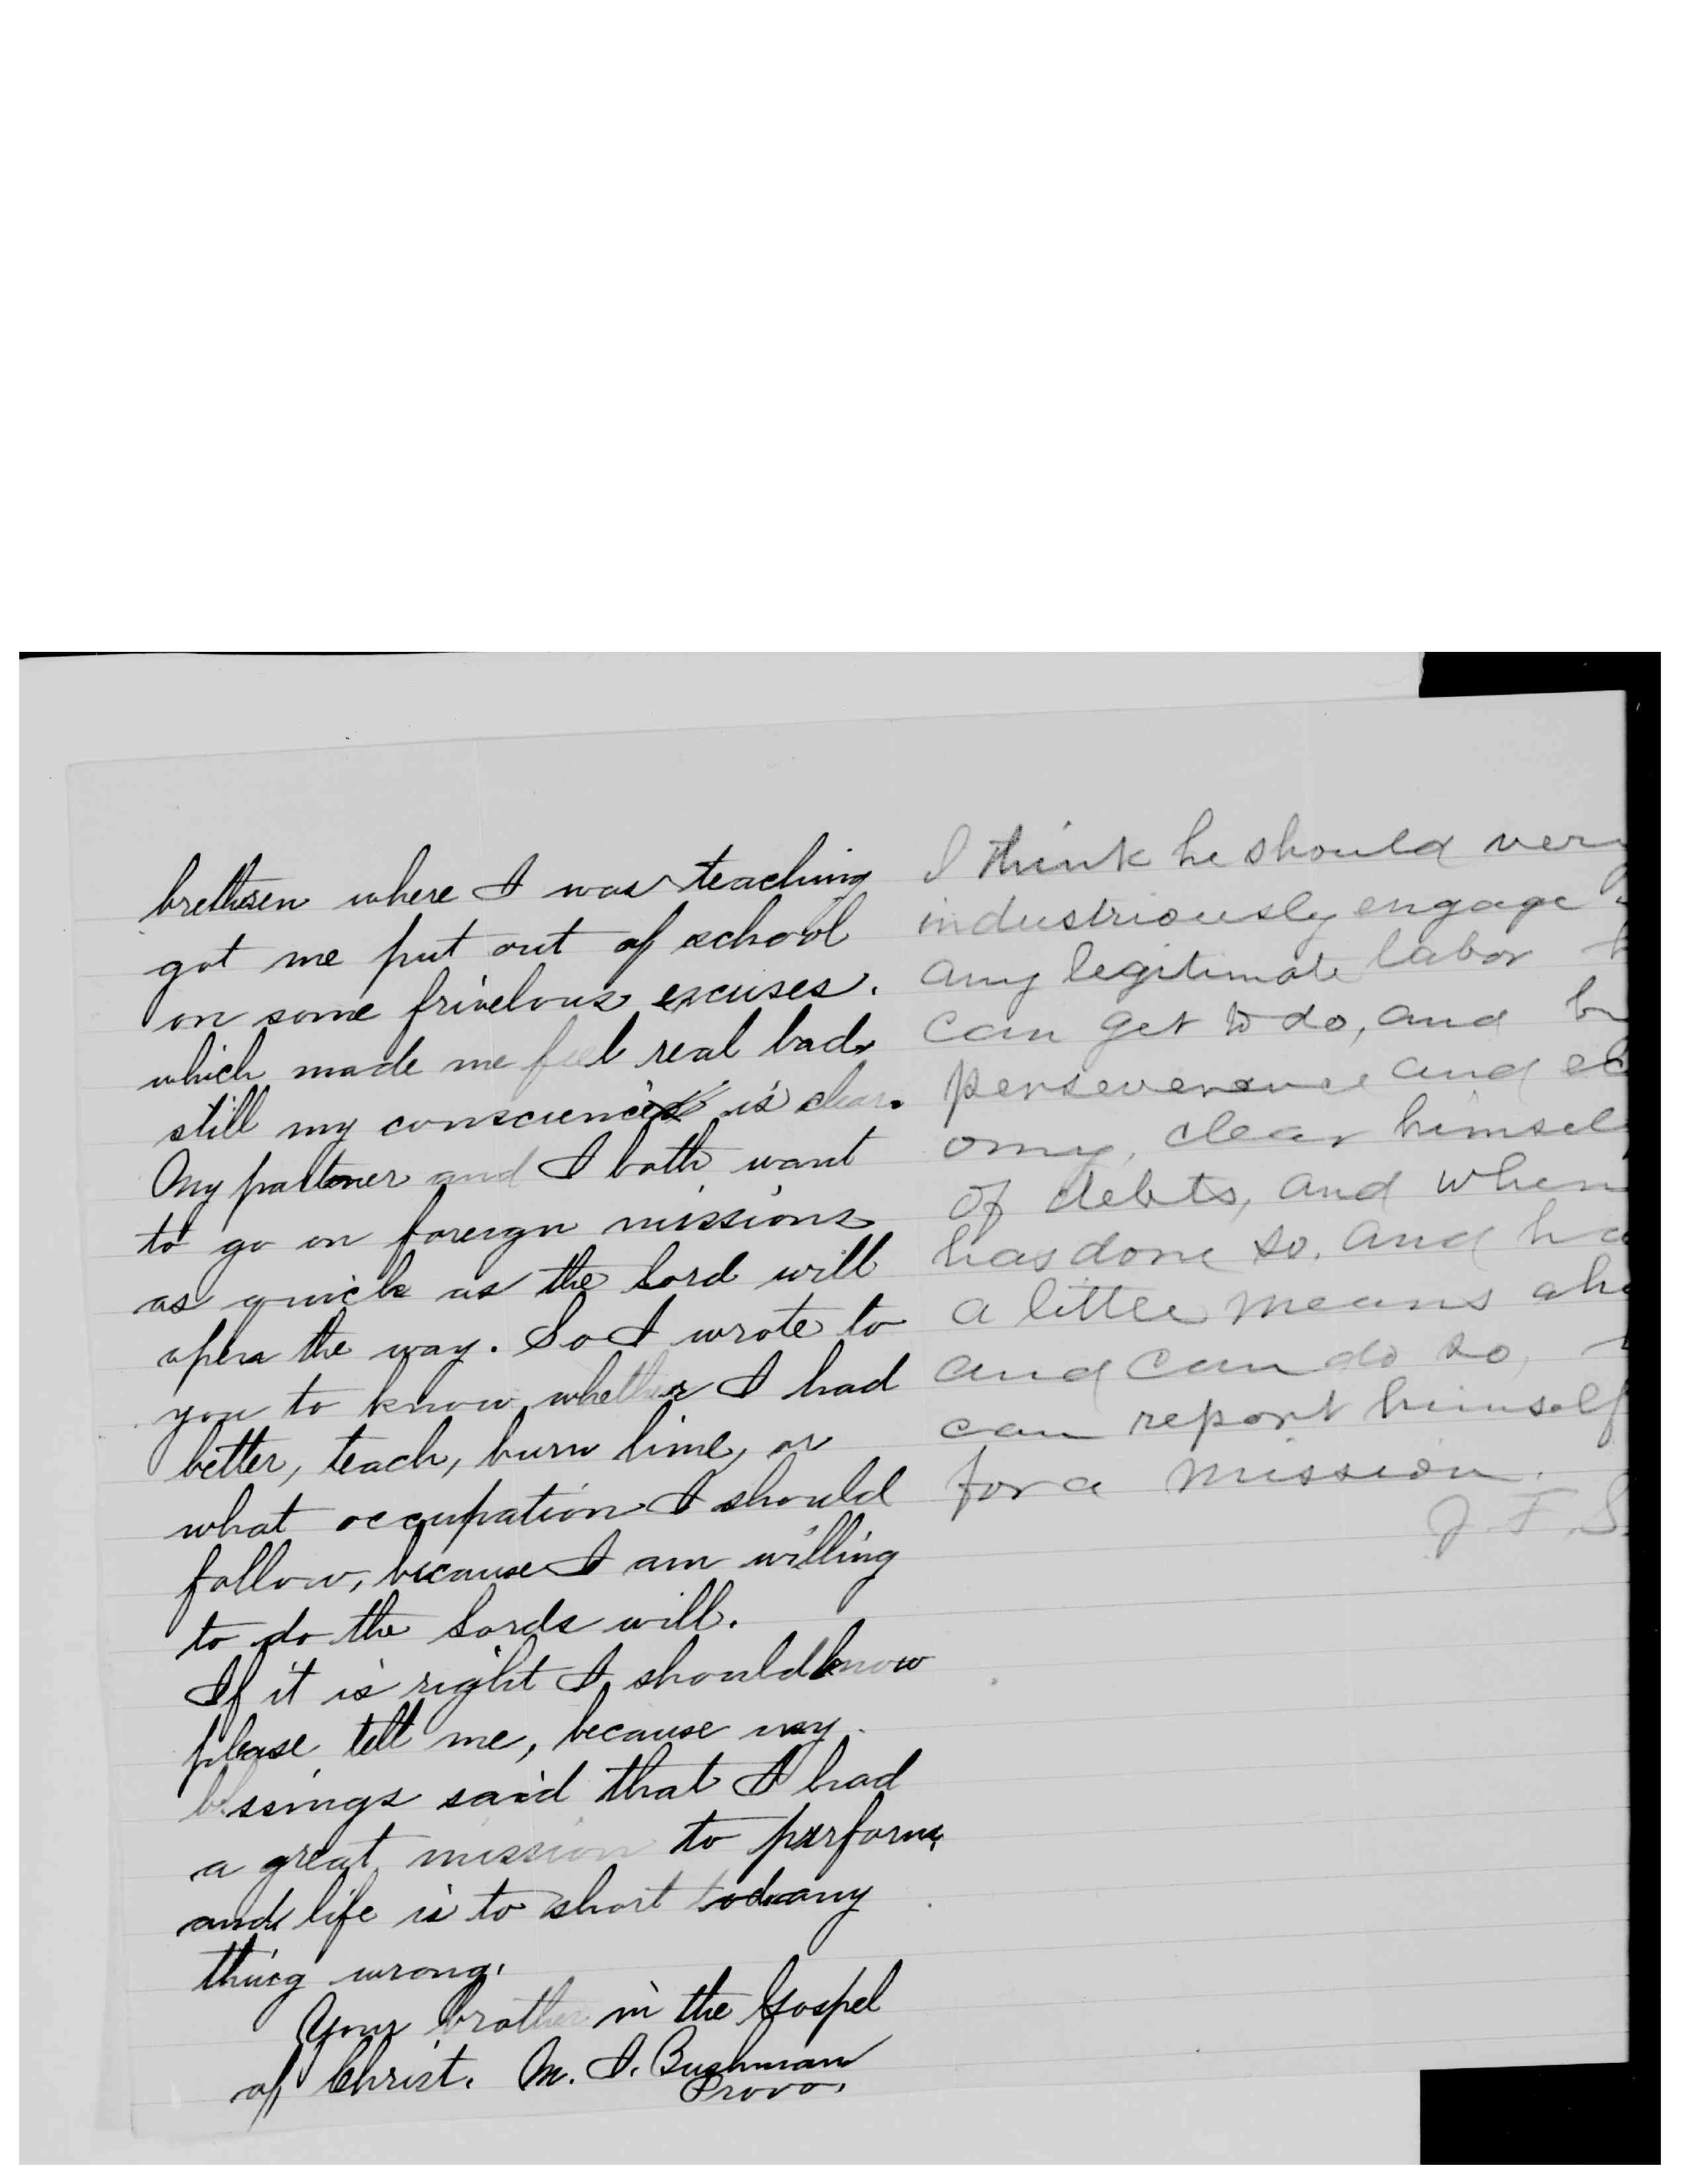 brethren where I was teaching
got me put out of school
on some frivelous excuses.
which made me feel real bad.
still my conscience is clear.
My partner and I both want
to go on foreign missions
as quick as the Lord will
open the way. So I wrote to
you to know whether I had
better, teach, burn lime, or
what occupation I should
follow, because I am willing
to do the Lords will.
If it is right I should know
please tell me, because my
blssings said that I had
a great mission to perform,
and life is to short to do any
thing wrong.
Your brother in the Gospel
of Christ. M. I. Bushman
Provo.
I think he should very
industriously engage
any legitimate labor
can get to do, and
perseverence and ec
omy, clear himsel
of debts, and when
has done so. and ha
a little means ahe
and can do so,
can report himself
for a mission.
J. F. S.